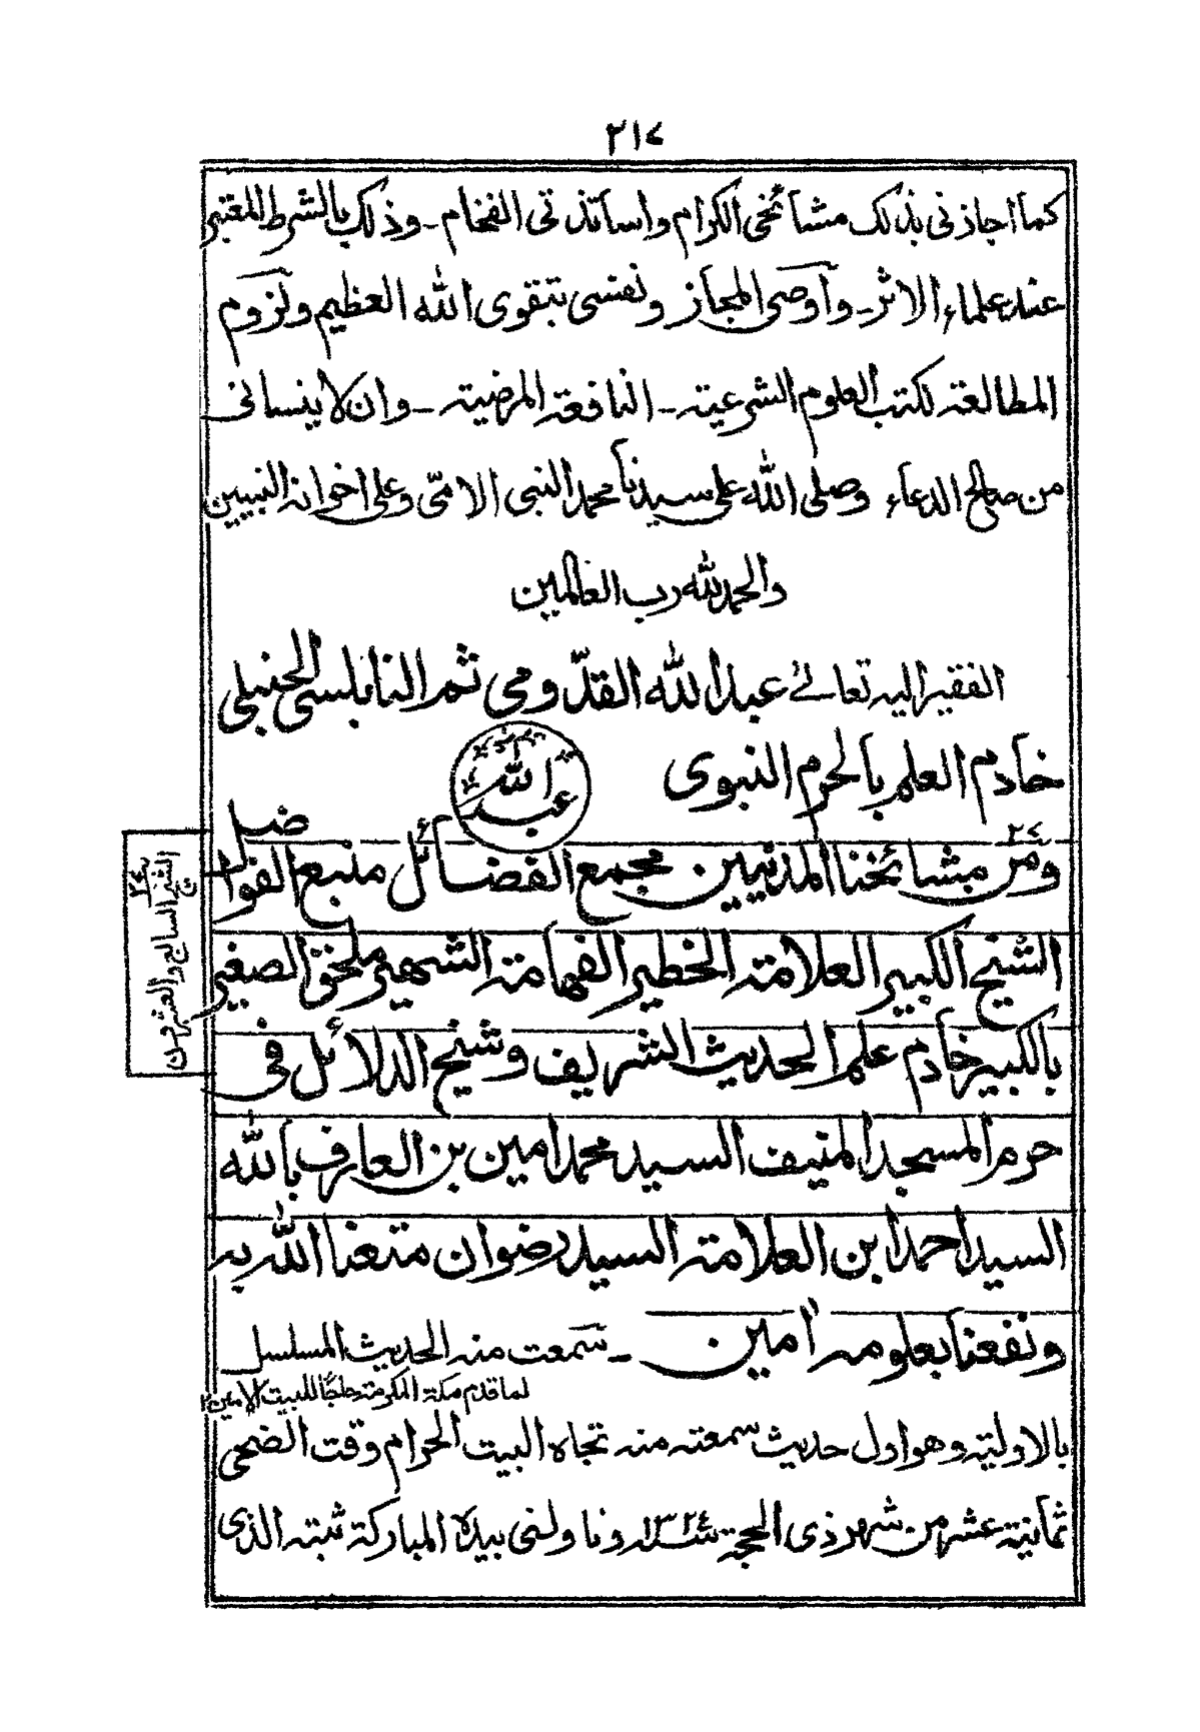 ٢١٧
كما اجازنى بذلك مشائخى الكرام واساتذتى الفخام ـ وذلك بالشرط المعتبر
عند علماء الاثر ـ وأوصى المجاز ونفسى بتقوى الله العظيم ولزوم
المطالعة لكتب العلوم الشرعية ـ النافعة المرضية ـ وان لا ينسانى
من صالح الدعاء وصلى الله على سيدنا محمد النبى الامّى وعلى اخوانه النبيين
والحمد لله رب العالمين
الفقير اليه تعالے عبد الله القدّومى ثم النابلسى الحنبلى
خادم العلم بالحرم النبوى
عبد الله
ومن مشائخنا المدنيين مجمع الفضائل منبع الفواضل
٢٧
الشيخ الكبير العلامة الخطير الفهامة الشهير ملحق الصغير
الشيخ السابع والعشرون
بالكبير خادم علم الحديث الشريف وشيخ الدلائل فى
حرم المسجد المنيف السيد محمد امين بن العارف بالله
السيد احمد ابن العلامة السيد رضوان متعنا الله به
ونفعنا بعلومه امين ـ سمعت منه الحديث المسلسل
لما قدم مكة المكرمة حاجًا للبيت الامين ١٢
بالاولية وهو اول حديث سمعته منه تجاه البيت الحرام وقت الضحى
ثمانية عشر من شهر ذى الحجة سنة ١٣٢٤ وناولنى بيده المباركة ثبته الذى